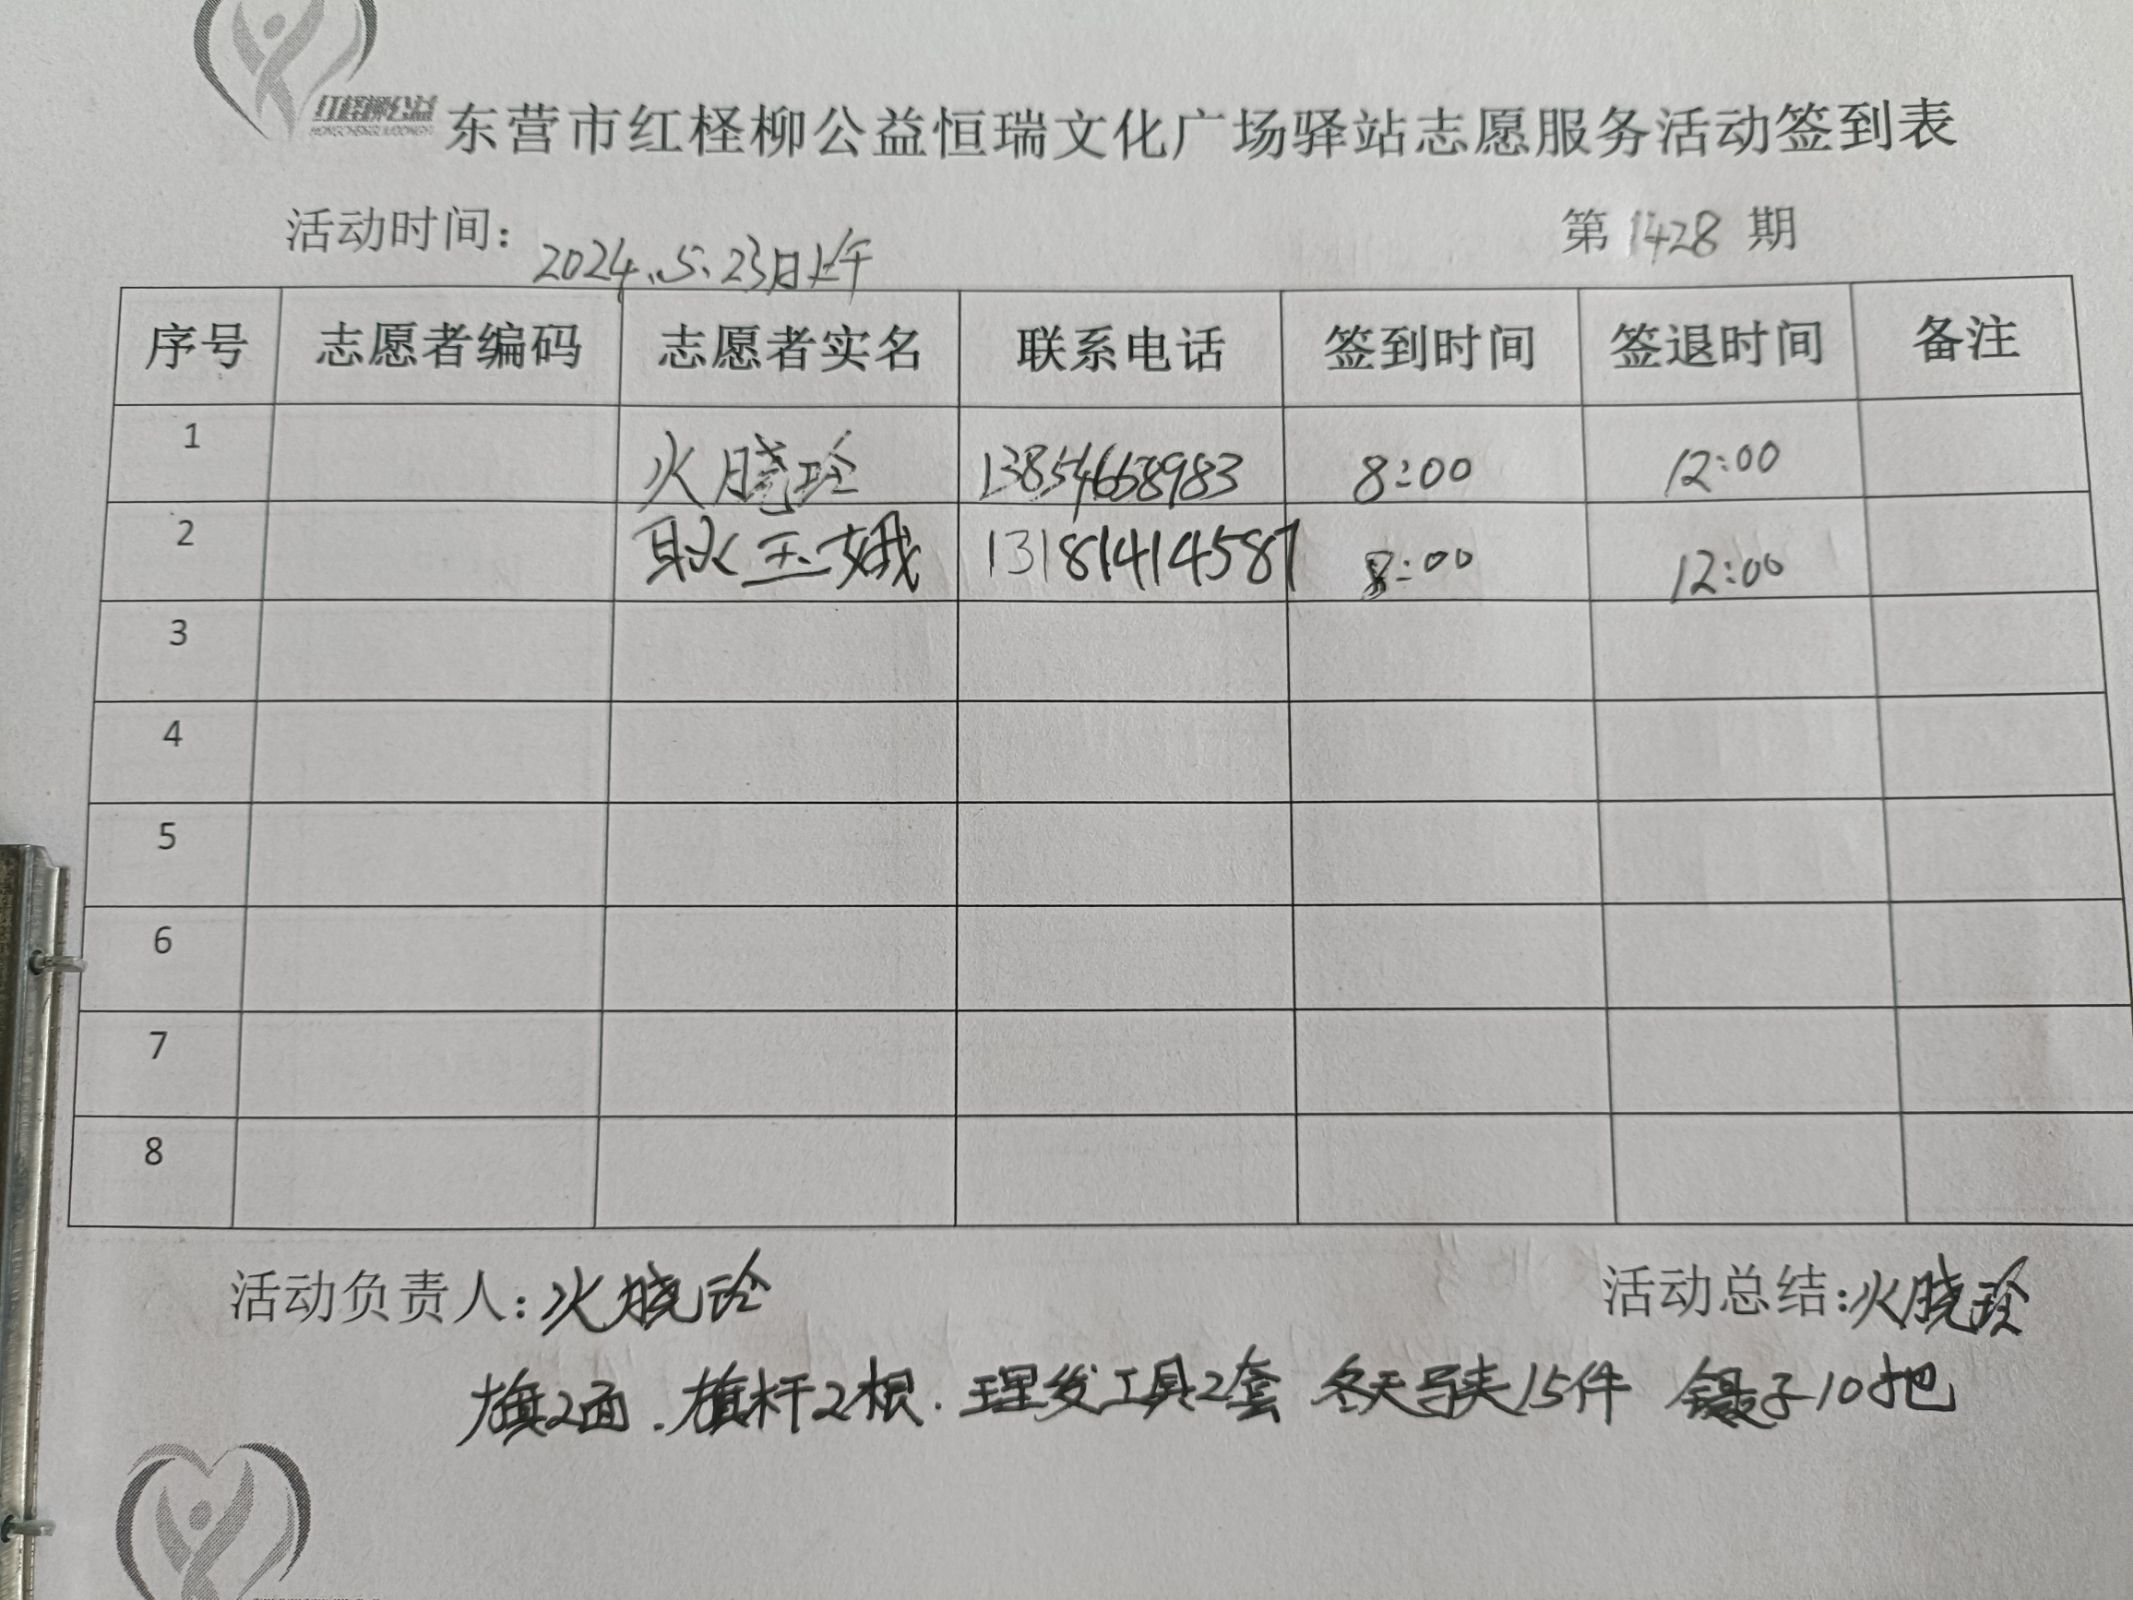 红柽柳公益
HONGCHENGLIUGONGYI
东营市红柽柳公益恒瑞文化广场驿站志愿服务活动签到表
活动时间：2024.5.23日上午 第1428期
序号 志愿者编码 志愿者实名 联系电话 签到时间 签退时间 备注
1 火晓玲 13854668983 8:00 12:00
2 耿玉娥 13181414587 8:00 12:00
3
4
5
6
7
8
活动负责人：火晓玲 活动总结：火晓玲
旗2面.旗杆2根.理发工具2套 冬天马夹15件 镊子10把